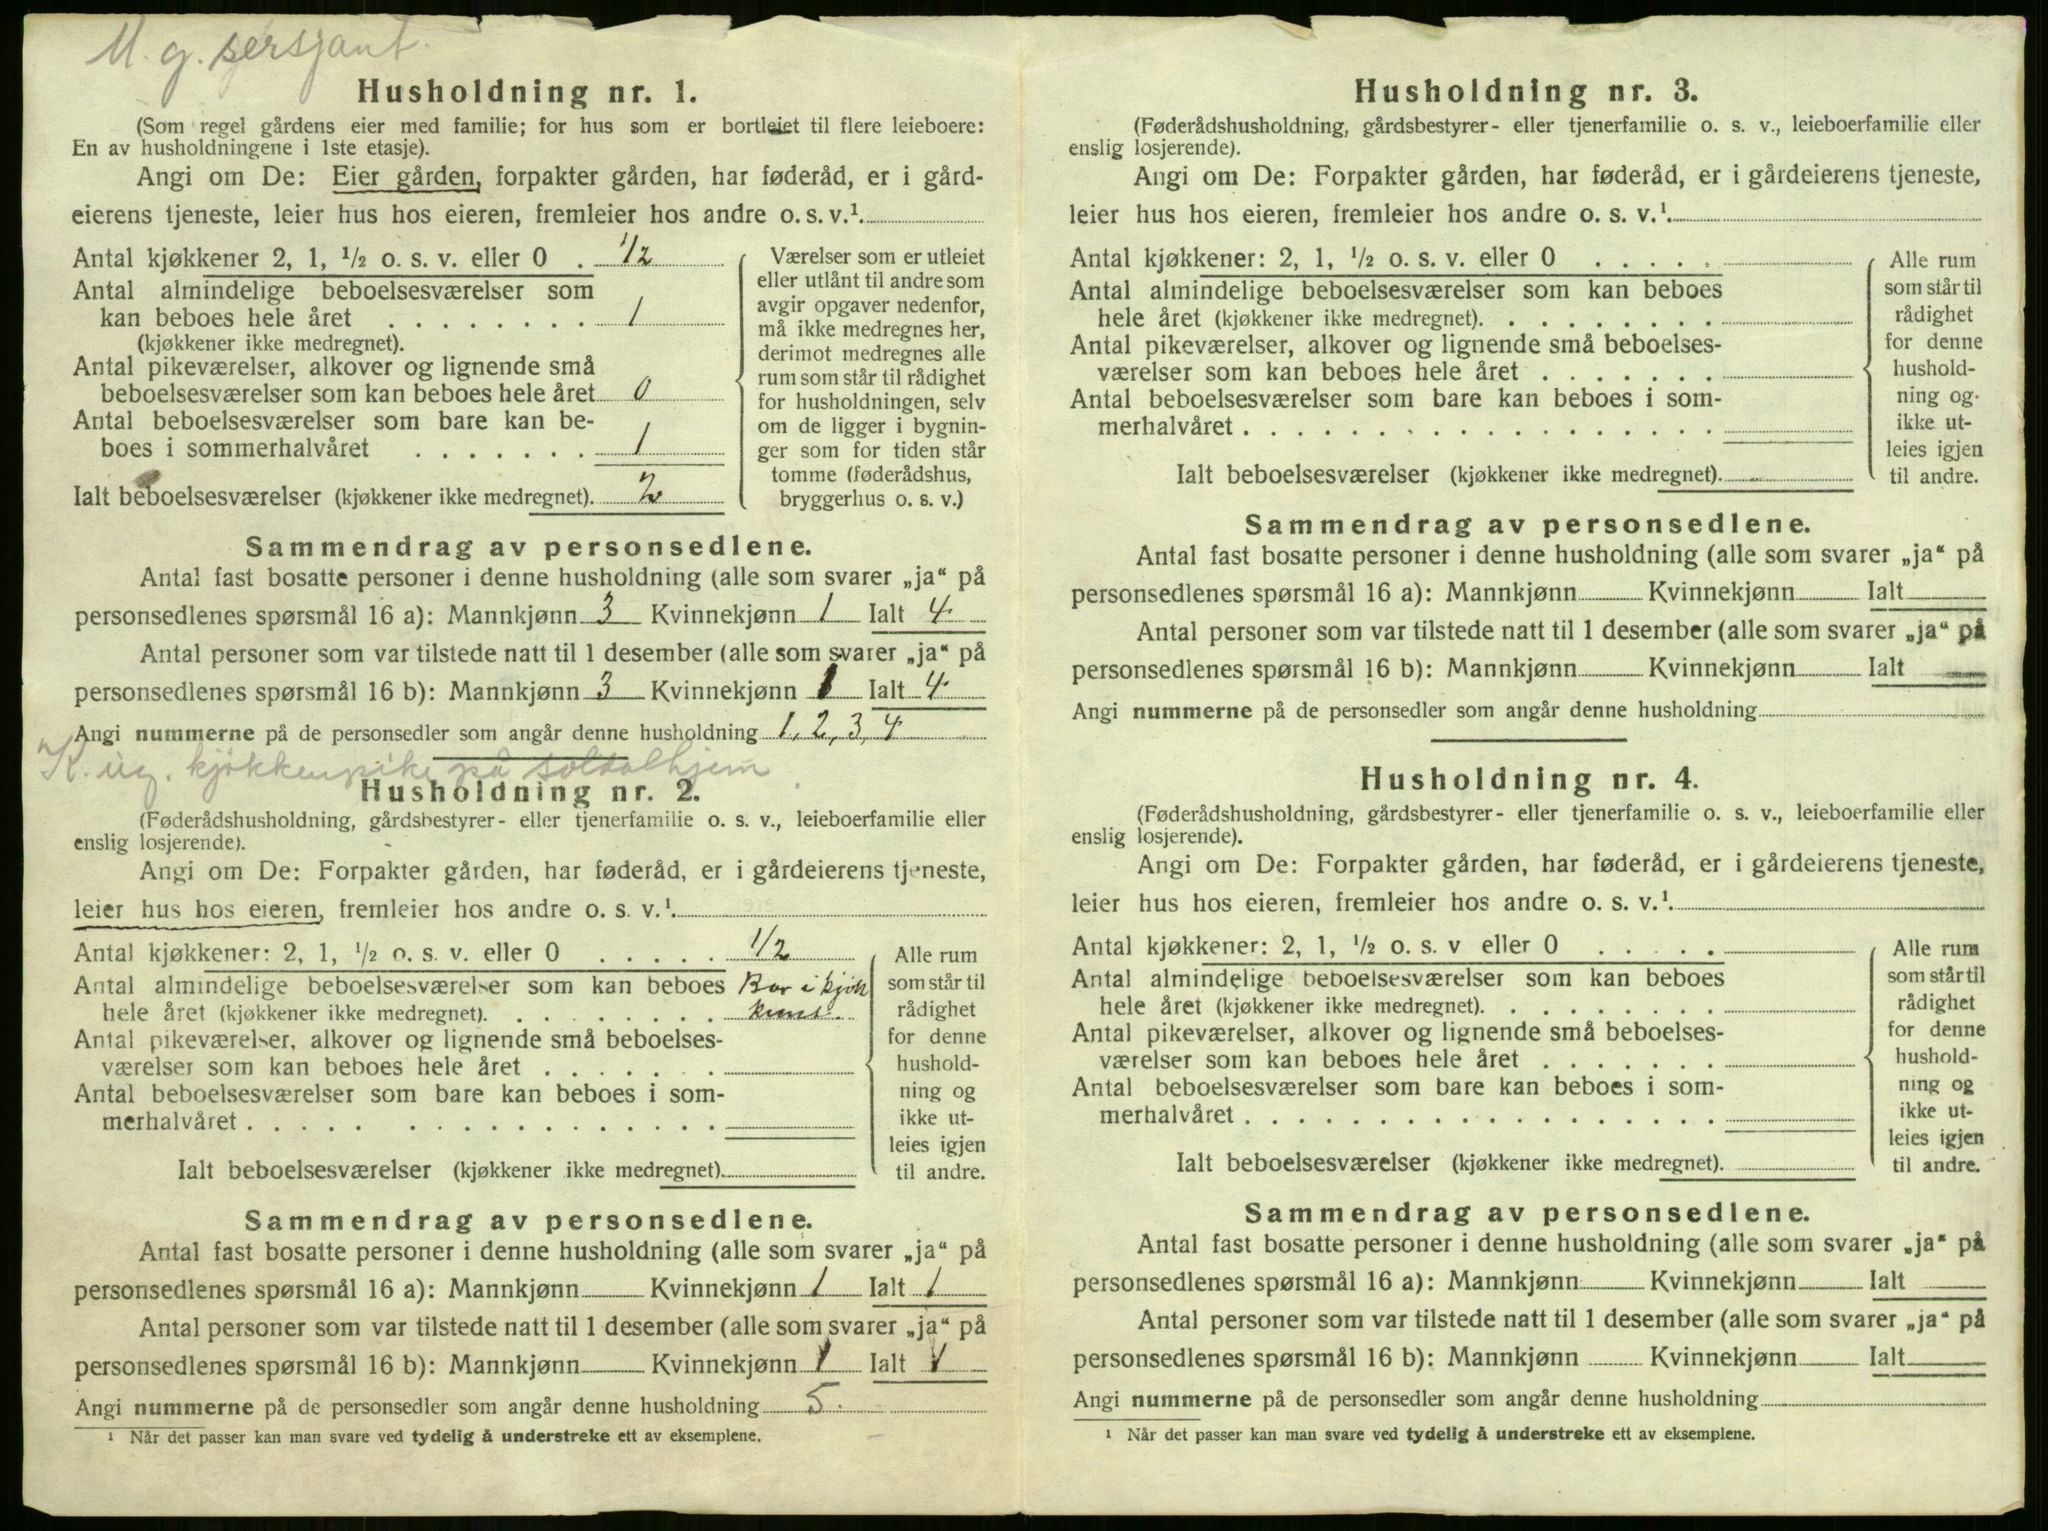 M. g. sersjant.
Husholdning nr. 1.
(Som regel gårdens eier med familie; for hus som er bortleiet til flere leieboere:
En av husholdningene i 1ste etasje).
Angi om De: Eier gården, forpakter gården, har føderåd, er i gård-
eierens tjeneste, leier hus hos eieren, fremleier hos andre o. s. v.¹.
Antal kjøkkener 2, 1, ½ o. s. v. eller 0 . 1/2
Antal almindelige beboelsesværelser som
kan beboes hele året . . . . . . . . 1
(kjøkkener ikke medregnet).
Antal pikeværelser, alkover og lignende små
beboelsesværelser som kan beboes hele året 0
Antal beboelsesværelser som bare kan be-
boes i sommerhalvåret . . . . . . . 1
Ialt beboelsesværelser (kjøkkener ikke medregnet). 2
Værelser som er utleiet
eller utlånt til andre som
avgir opgaver nedenfor,
må ikke medregnes her,
derimot medregnes alle
rum som står til rådighet
for husholdningen, selv
om de ligger i bygnin-
ger som for tiden står
tomme (føderådshus,
bryggerhus o. s. v.)
Sammendrag av personsedlene.
Antal fast bosatte personer i denne husholdning (alle som svarer „ja“ på
personsedlenes spørsmål 16 a): Mannkjønn 3 Kvinnekjønn 1 Ialt 4
Antal personer som var tilstede natt til 1 desember (alle som svarer „ja“ på
personsedlenes spørsmål 16 b): Mannkjønn 3 Kvinnekjønn 1 Ialt 4
Angi nummerne på de personsedler som angår denne husholdning 1, 2, 3, 4
K. ug. kjøkkenpike på soldathjem
Husholdning nr. 2.
(Føderådshusholdning, gårdsbestyrer- eller tjenerfamilie o. s. v., leieboerfamilie eller
enslig losjerende).
Angi om De: Forpakter gården, har føderåd, er i gårdeierens tjeneste,
leier hus hos eieren, fremleier hos andre o. s. v.¹.
Antal kjøkkener: 2, 1, ½ o. s. v. eller 0 . . . . . 1/2
Antal almindelige beboelsesværelser som kan beboes Bor i kjøk
hele året (kjøkkener ikke medregnet). . . . . . . . .
Antal pikeværelser, alkover og lignende små beboelses-
værelser som kan beboes hele året . . . . . . .
Antal beboelsesværelser som bare kan beboes i som-
merhalvåret . . . . . . . . . . . . . . . . . .
Ialt beboelsesværelser (kjøkkener ikke medregnet).
Alle rum
som står til
rådighet
for denne
hushold-
ning og
ikke ut-
leies igjen
til andre.
Sammendrag av personsedlene.
Antal fast bosatte personer i denne husholdning (alle som svarer „ja“ på
personsedlenes spørsmål 16 a): Mannkjønn Kvinnekjønn 1 Ialt 1
Antal personer som var tilstede natt til 1 desember (alle som svarer „ja“ på
personsedlenes spørsmål 16 b): Mannkjønn Kvinnekjønn 1 Ialt 1
Angi nummerne på de personsedler som angår denne husholdning 5.
¹ Når det passer kan man svare ved tydelig å understreke ett av eksemplene.
Husholdning nr. 3.
(Føderådshusholdning, gårdsbestyrer- eller tjenerfamilie o. s. v., leieboerfamilie eller
enslig losjerende).
Angi om De: Forpakter gården, har føderåd, er i gårdeierens tjeneste,
leier hus hos eieren, fremleier hos andre o. s. v.¹.
Antal kjøkkener: 2, 1, ½ o. s. v. eller 0 . . . . .
Antal almindelige beboelsesværelser som kan beboes
hele året (kjøkkener ikke medregnet). . . . . . . . .
Antal pikeværelser, alkover og lignende små beboelses-
værelser som kan beboes hele året . . . . . . .
Antal beboelsesværelser som bare kan beboes i som-
merhalvåret . . . . . . . . . . . . . . . . . .
Ialt beboelsesværelser (kjøkkener ikke medregnet).
Alle rum
som står til
rådighet
for denne
hushold-
ning og
ikke ut-
leies igjen
til andre.
Sammendrag av personsedlene.
Antal fast bosatte personer i denne husholdning (alle som svarer „ja“ på
personsedlenes spørsmål 16 a): Mannkjønn Kvinnekjønn Ialt
Antal personer som var tilstede natt til 1 desember (alle som svarer „ja“ på
personsedlenes spørsmål 16 b): Mannkjønn Kvinnekjønn Ialt
Angi nummerne på de personsedler som angår denne husholdning
Husholdning nr. 4.
(Føderådshusholdning, gårdsbestyrer- eller tjenerfamilie o. s. v., leieboerfamilie eller
enslig losjerende).
Angi om De: Forpakter gården, har føderåd, er i gårdeierens tjeneste,
leier hus hos eieren, fremleier hos andre o. s. v.¹.
Antal kjøkkener: 2, 1, ½ o. s. v eller 0 . . . . .
Antal almindelige beboelsesværelser som kan beboes
hele året (kjøkkener ikke medregnet). . . . . . . . .
Antal pikeværelser, alkover og lignende små beboelses-
værelser som kan beboes hele året . . . . . . .
Antal beboelsesværelser som bare kan beboes i som-
merhalvåret . . . . . . . . . . . . . . . . . .
Ialt beboelsesværelser (kjøkkener ikke medregnet).
Alle rum
som står til
rådighet
for denne
hushold-
ning og
ikke ut-
leies igjen
til andre.
Sammendrag av personsedlene.
Antal fast bosatte personer i denne husholdning (alle som svarer „ja“ på
personsedlenes spørsmål 16 a): Mannkjønn Kvinnekjønn Ialt
Antal personer som var tilstede natt til 1 desember (alle som svarer „ja“ på
personsedlenes spørsmål 16 b): Mannkjønn Kvinnekjønn Ialt
Angi nummerne på de personsedler som angår denne husholdning
¹ Når det passer kan man svare ved tydelig å understreke ett av eksemplene.